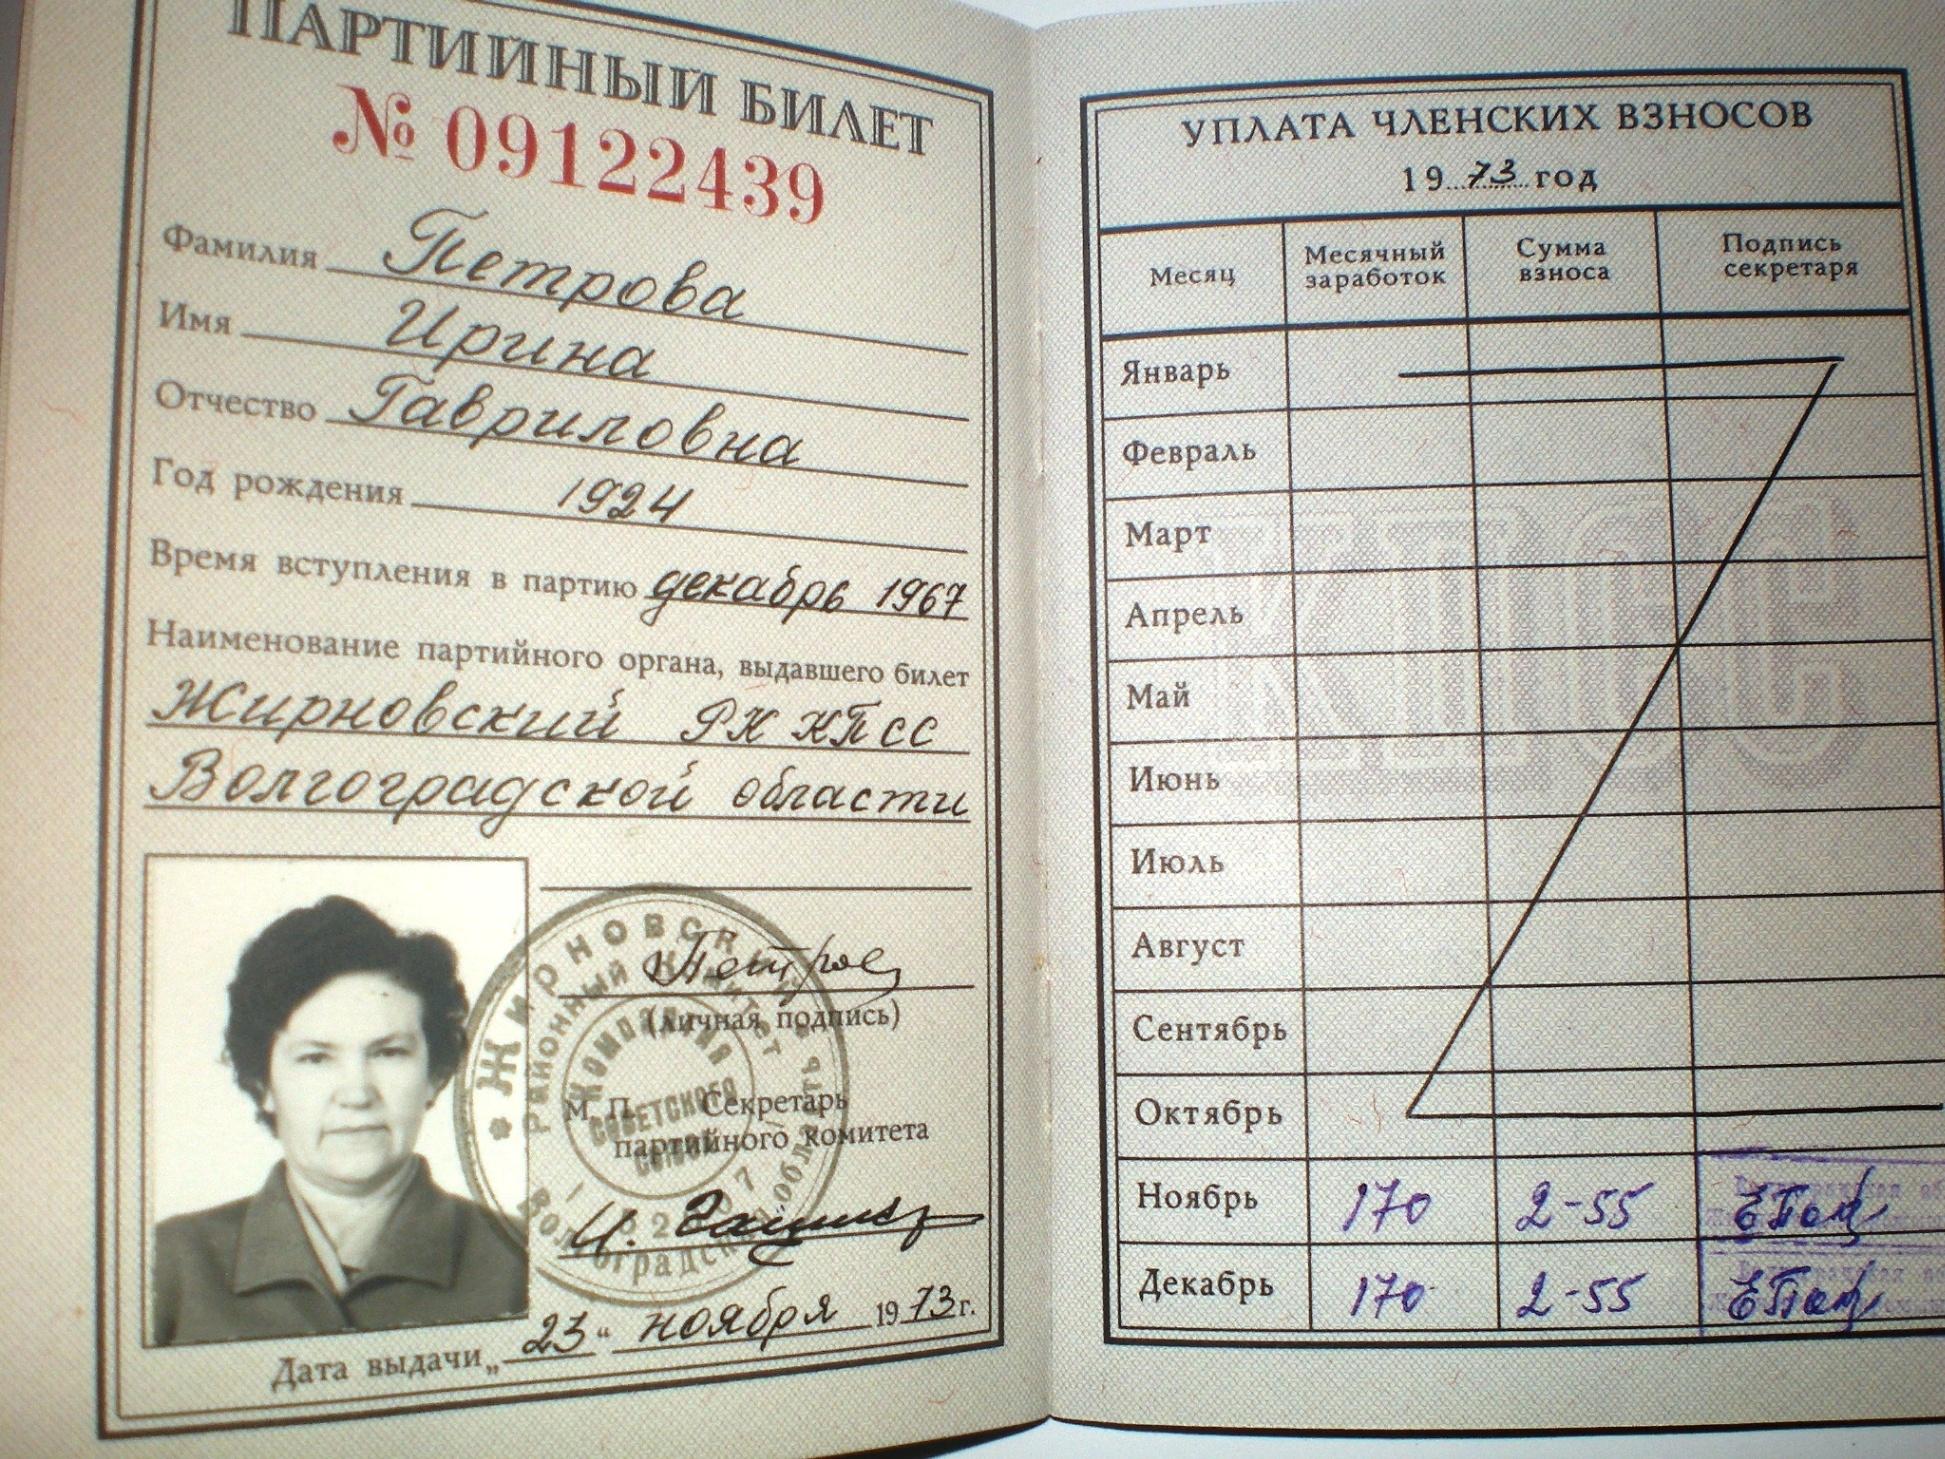 ПАРТИЙНЫЙ БИЛЕТ
№ 09122439
Фамилия Петрова
Имя Ирина
Отчество Гавриловна
Год рождения 1924
Время вступления в партию декабрь 1967
Наименование партийного органа, выдавшего билет
Жирновский РК КПСС
Волгоградской области
(личная подпись)
М. П. Секретарь
партийного комитета
Дата выдачи „ 23 “ ноября 1973 г.
ЖИРНОВСКИЙ
РАЙОННЫЙ КОМИТЕТ
КОМПАРТИЯ
СОВЕТСКОГО
СОЮЗА
УПЛАТА ЧЛЕНСКИХ ВЗНОСОВ
19 73 год
Месяц Месячный заработок Сумма взноса Подпись секретаря
Январь
Февраль
Март
Апрель
Май
Июнь
Июль
Август
Сентябрь
Октябрь
Ноябрь 170 2-55
Декабрь 170 2-55
КПСС